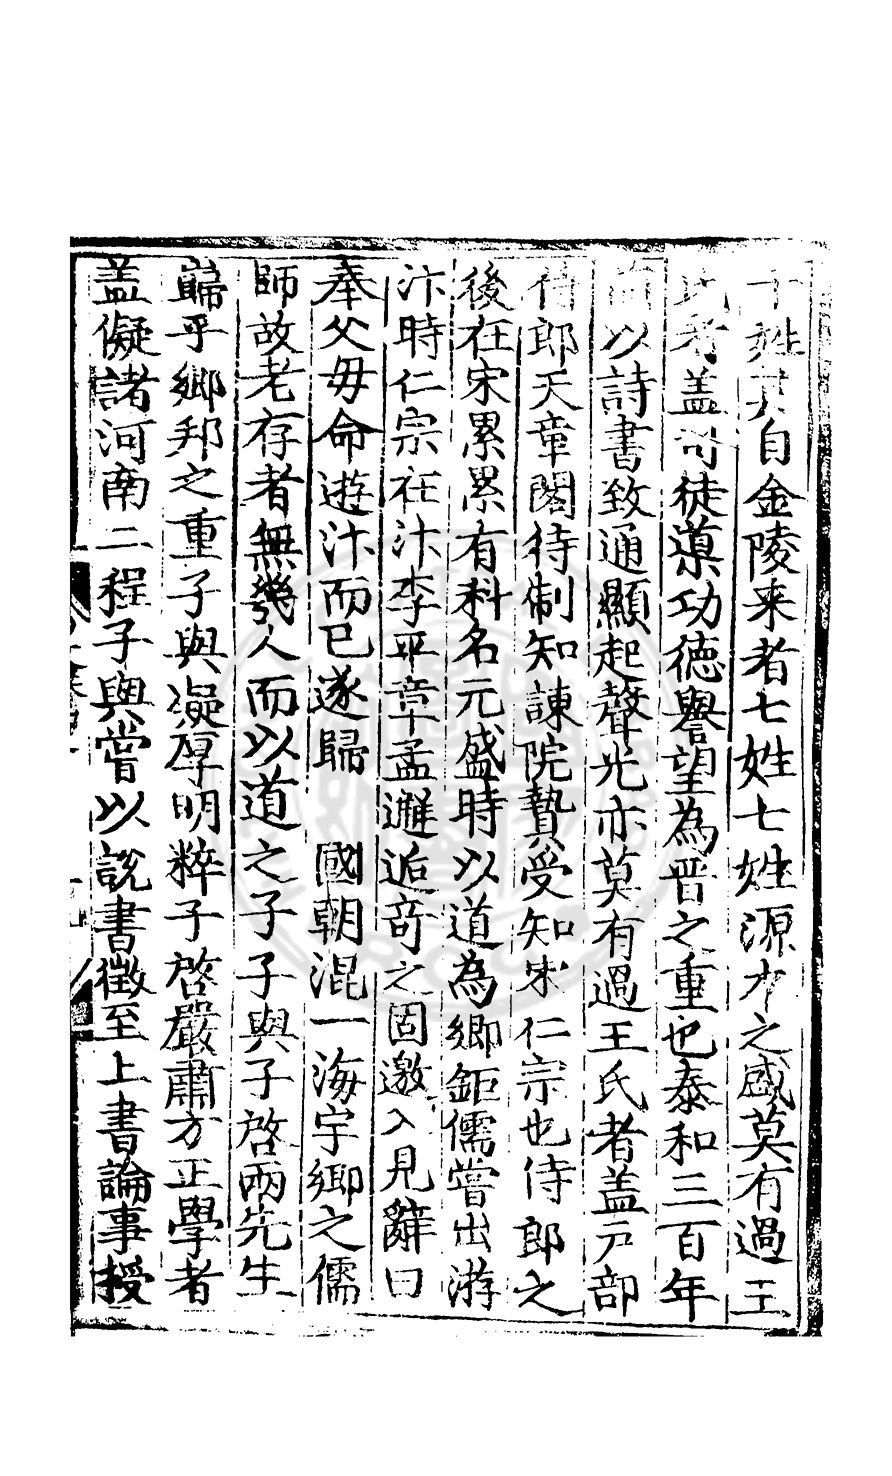 十姓其自金陵来者七姓七姓源才之盛莫有過王
氏者盖司徒導功德譽望為晋之重也泰和三百年
間以詩書致通顯起聲光亦莫有過王氏者盖户部
侍郎天章閣待制知諌院贄受知宋仁宗也侍郎之
後在宋累累有科名元盛時以道為鄉鉅儒嘗出游
汴時仁宗在汴李平章孟邂逅竒之固邀入見辭曰
奉父毋命遊汴而已遂歸 國朝混一海宇鄉之儒
師故老存者無幾人而以道之子子與子啓兩先生
巋乎鄉邦之重子與凝厚明粹子啓嚴肅方正學者
盖儗諸河南二程子與嘗以說書徵至上書論事授